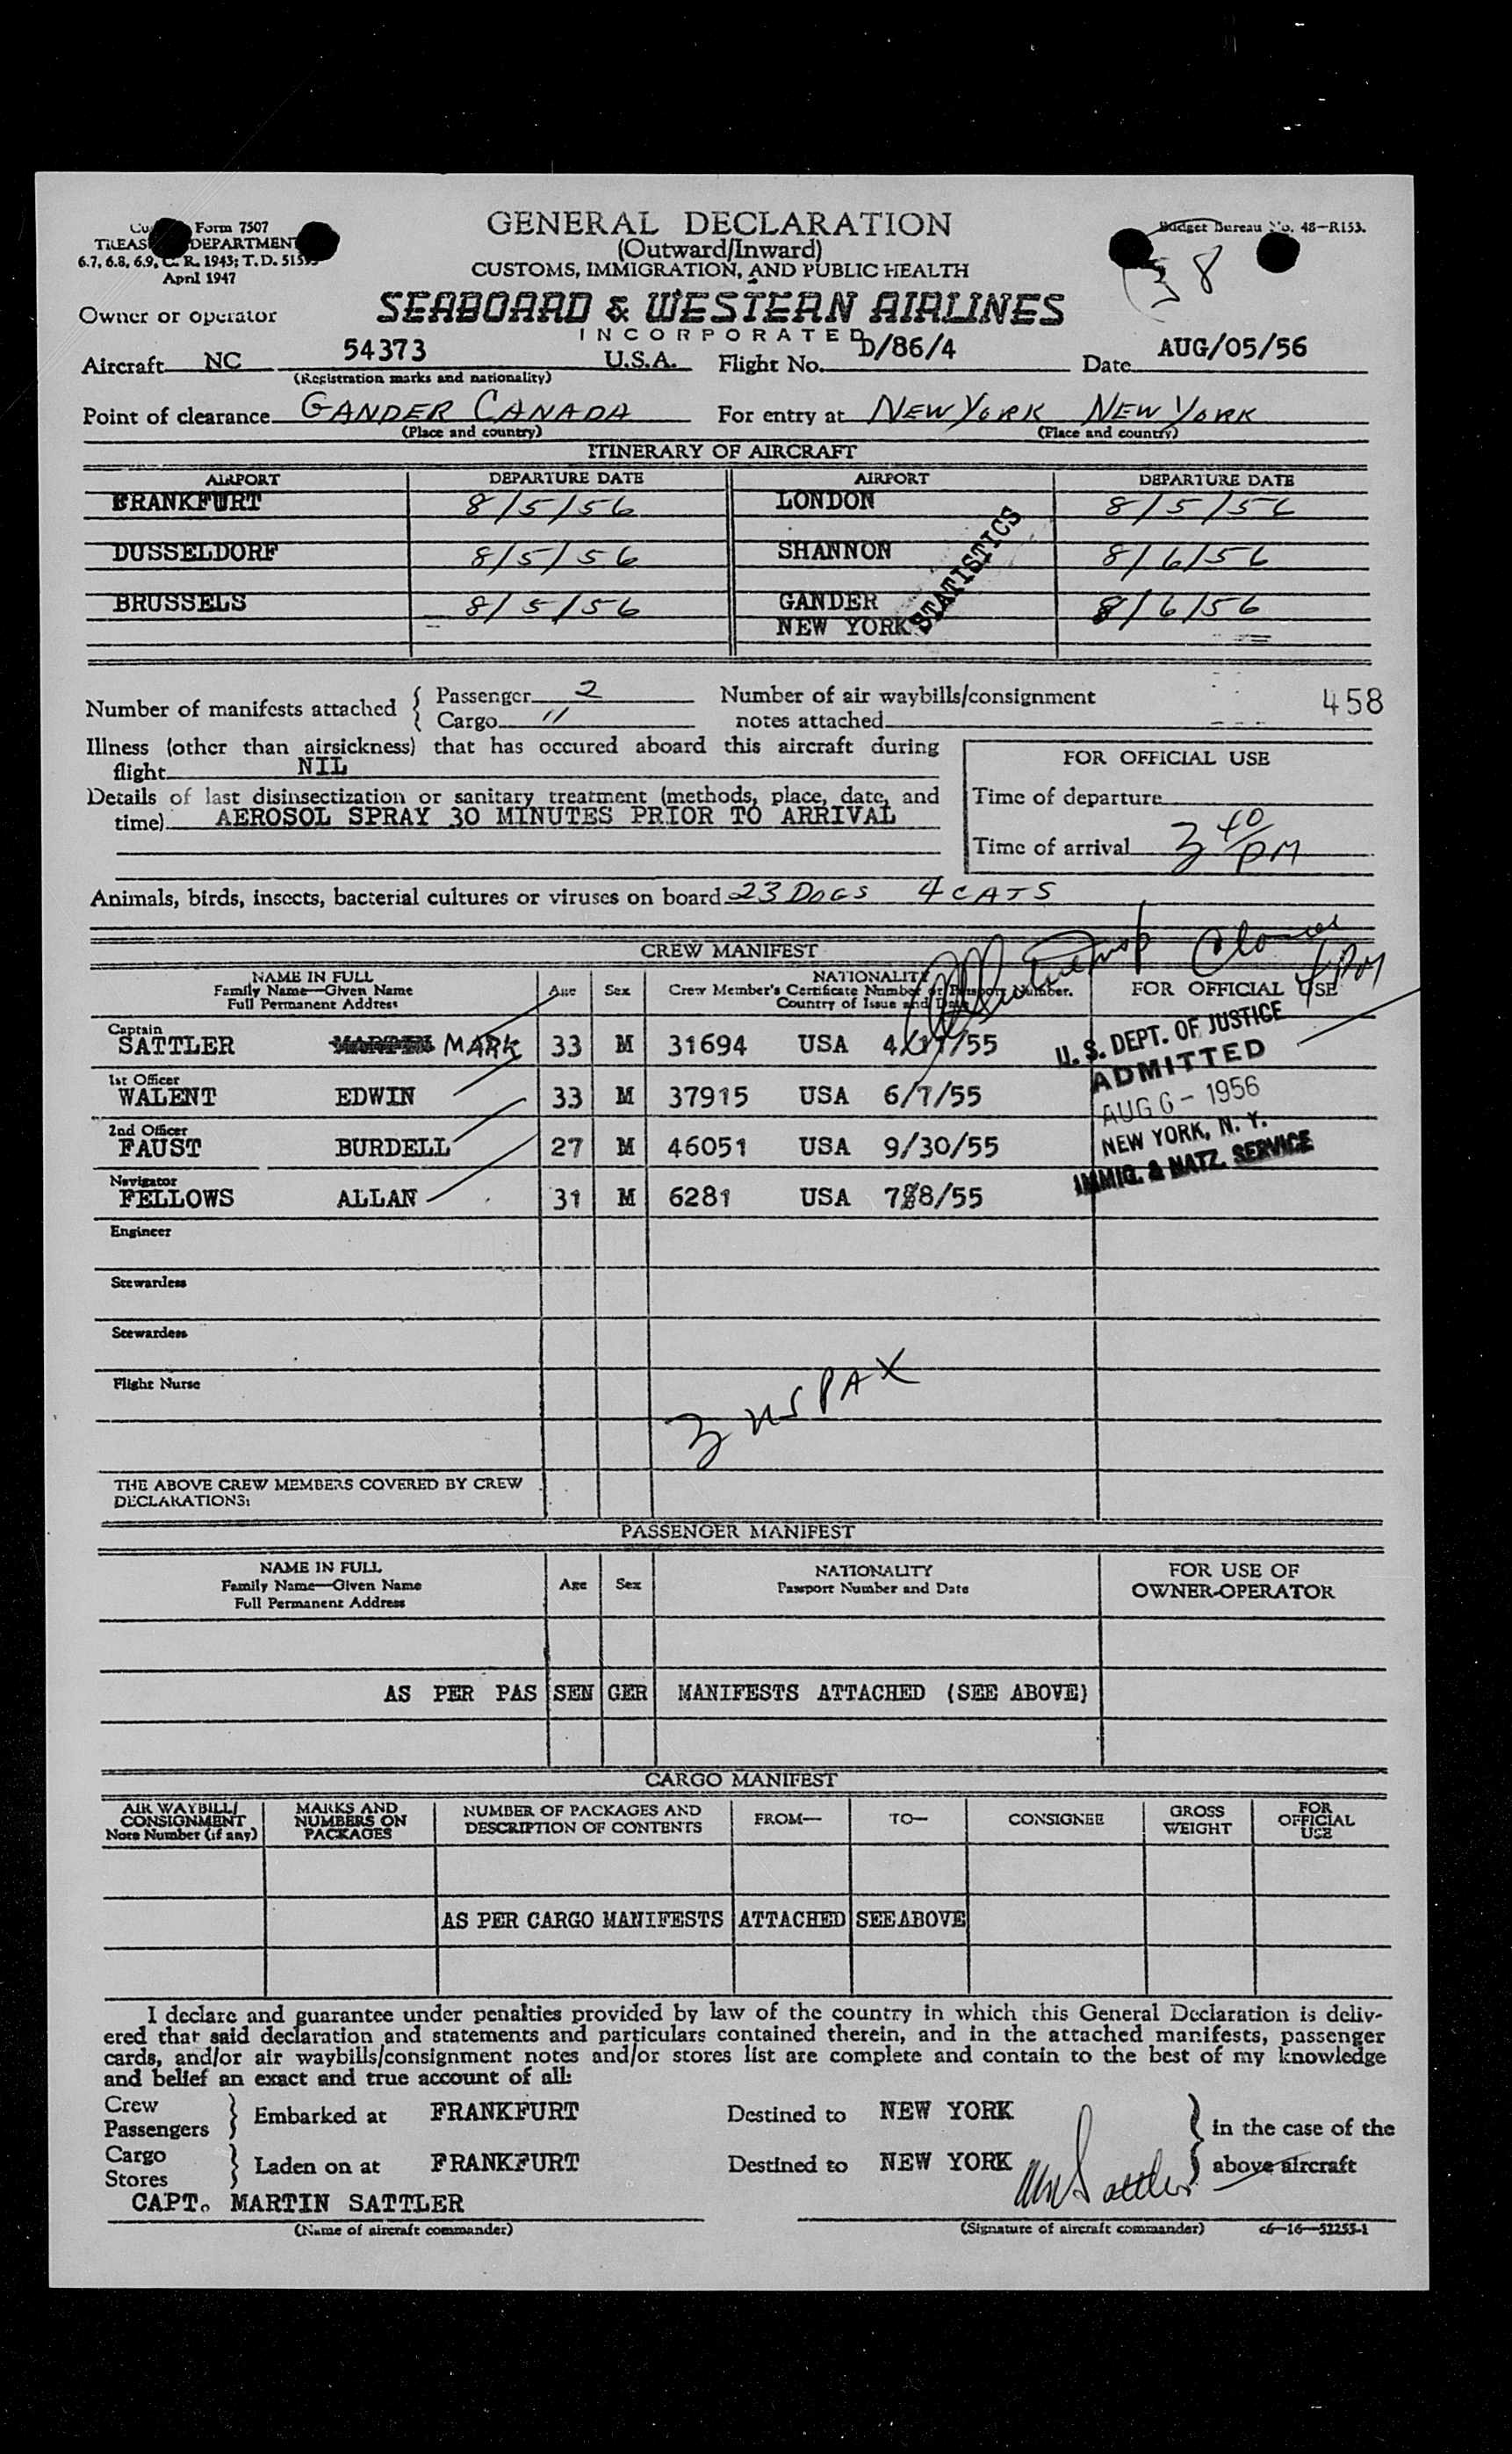 Form 7507
TREAS DEPARTMENT
6.7, 6.8, 6.9, C. R. 1943; T. D.
April 1947
GENERAL DECLARATION
(Outward/Inward)
CUSTOMS, IMMIGRATION, AND PUBLIC HEALTH
Budget Bureau No. 48-R153.
38
Owner or operator
SEABOARD & WESTERN AIRLINES
INCORPORATED
Aircraft NC 54373 U.S.A. Flight No. D/86/4 Date AUG/05/56
(Registration marks and nationality)
Point of clearance GANDER CANADA For entry at NEW YORK NEW YORK
(Place and country) (Place and country)
ITINERARY OF AIRCRAFT
AIRPORT DEPARTURE DATE AIRPORT DEPARTURE DATE
FRANKFURT 8/5/56 LONDON 8/5/56
DUSSELDORF 8/5/56 SHANNON 8/6/56
BRUSSELS 8/5/56 GANDER 8/6/56
NEW YORK
STATISTICS
Number of manifests attached { Passenger 2 Number of air waybills/consignment
Cargo 11 notes attached
458
Illness (other than airsickness) that has occured aboard this aircraft during
flight NIL
FOR OFFICIAL USE
Details of last disinsectization or sanitary treatment (methods, place, date, and
time) AEROSOL SPRAY 30 MINUTES PRIOR TO ARRIVAL
Time of departure
Time of arrival 3 40 PM
Animals, birds, insects, bacterial cultures or viruses on board 23 DOGS 4 CATS
CREW MANIFEST
NAME IN FULL
Family Name—Given Name
Full Permanent Address
Age Sex
NATIONALITY
Crew Member's Certificate Number or Passport Number.
Country of Issue and Date
FOR OFFICIAL USE
Captain
SATTLER MARTIN MARK 33 M 31694 USA 55
1st Officer
WALENT EDWIN 33 M 37915 USA 6/7/55
2nd Officer
FAUST BURDELL 27 M 46051 USA 9/30/55
Navigator
FELLOWS ALLAN 31 M 6281 USA 7/8/55
U. S. DEPT. OF JUSTICE
ADMITTED
AUG 6 - 1956
NEW YORK, N. Y.
IMMIG. & NATZ. SERVICE
Engineer
Stewardess
Stewardess
Flight Nurse
3 US PAX
THE ABOVE CREW MEMBERS COVERED BY CREW
DECLARATIONS:
PASSENGER MANIFEST
NAME IN FULL
Family Name—Given Name
Full Permanent Address
Age Sex
NATIONALITY
Passport Number and Date
FOR USE OF
OWNER-OPERATOR
AS PER PAS SEN GER MANIFESTS ATTACHED (SEE ABOVE)
CARGO MANIFEST
AIR WAYBILL/
CONSIGNMENT
Note Number (if any)
MARKS AND
NUMBERS ON
PACKAGES
NUMBER OF PACKAGES AND
DESCRIPTION OF CONTENTS
FROM— TO— CONSIGNEE
GROSS
WEIGHT
FOR
OFFICIAL
USE
AS PER CARGO MANIFESTS ATTACHED SEE ABOVE
I declare and guarantee under penalties provided by law of the country in which this General Declaration is deliv-
ered that said declaration and statements and particulars contained therein, and in the attached manifests, passenger
cards, and/or air waybills/consignment notes and/or stores list are complete and contain to the best of my knowledge
and belief an exact and true account of all:
Crew
Passengers } Embarked at FRANKFURT Destined to NEW YORK } in the case of the
Cargo
Stores } Laden on at FRANKFURT Destined to NEW YORK } above aircraft
CAPT. MARTIN SATTLER M Sattler
(Name of aircraft commander) (Signature of aircraft commander) c6—16—52255-1